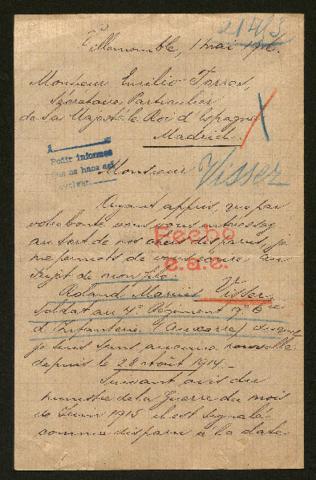 Villemomble, 1 mai 1916.
21413
Monsieur Emilio Torres,
Secrétaire Particulier
de Sa Majesté le Roi d'Espagne
Madrid.
Pedir informes
Monsieur
Visser
Ayant appris, que par
votre bonté vous vous intéressez
au sort de nos chers disparus, je
me permets de
sujet de mon fils.
Hecho
e.a.c.
Roland Marius Visser
soldat au 4e Régiment
d'Infanterie (Auxerre) duquel
je suis sans aucune nouvelle
depuis le 28 août 1914.
Suivant avis du
ministre de la Guerre du mois
de Juin 1915 il est signalé
comme disparu à la date